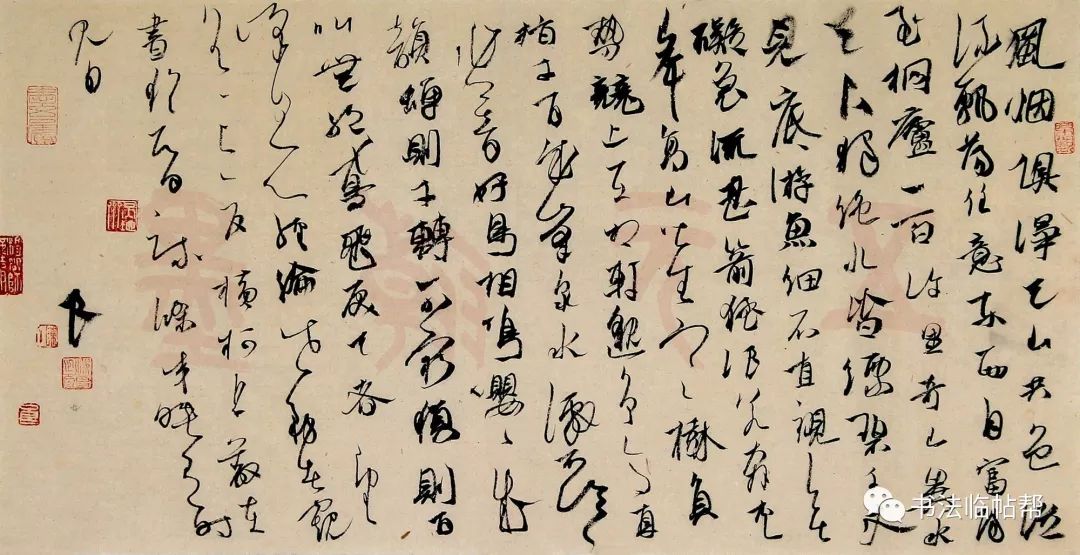 風烟俱淨天山共色從
流飄蕩任意東西自富陽
至桐廬一百許里奇山異水
天下獨絕水皆縹碧千丈
見底游魚細石直視無
礙急流甚箭猛浪若奔夾
岸高山皆生寒樹負
勢競上互相軒邈爭高直
指千百成峯泉水激石泠泠
作響好鳥相鳴嚶嚶成
韻蟬則千轉不窮猿則百
叫無絕鳶飛戾天者望
峯息心經綸世務者窺
谷忘反橫柯上蔽在
晝猶昏疎條交映有時
見日
书法临帖帮